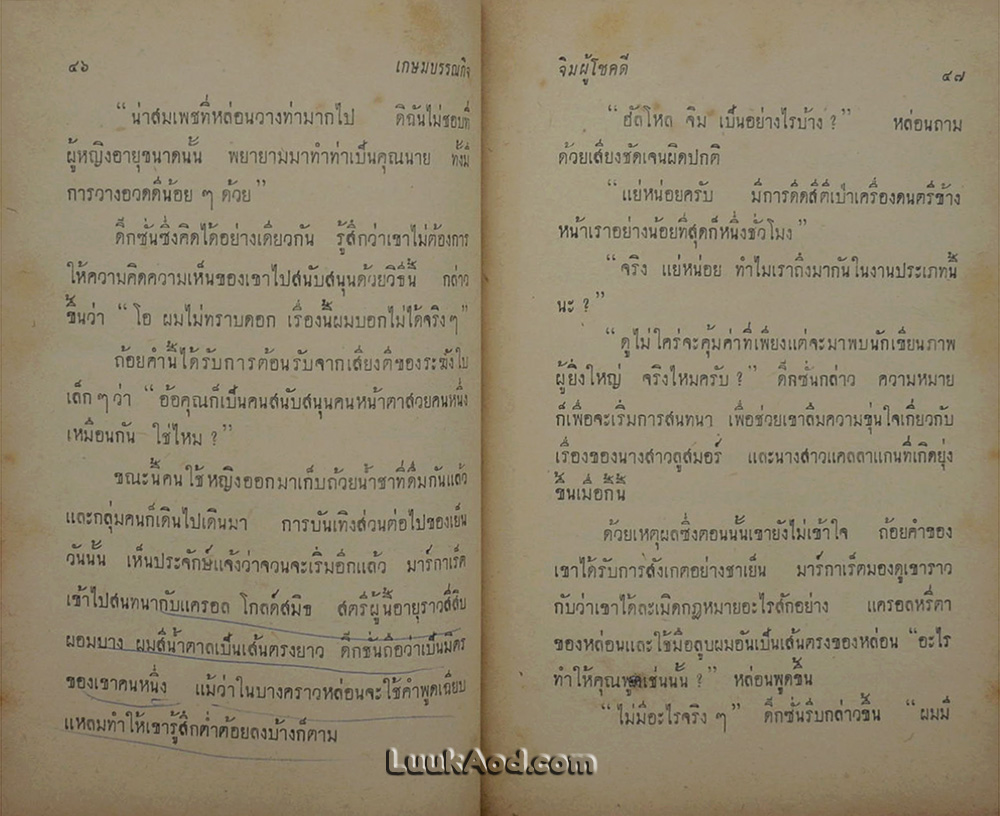 ๔๖ เกษมบรรณกิจ
“ น่าสมเพชที่หล่อนวางท่ามากไป ดิฉันไม่ชอบที่
ผู้หญิงอายุขนาดนั้น พยายามมาทำท่าเป็นคุณนาย ทั้งมี
การวางอวดดีน้อย ๆ ด้วย ”
ดิ๊กซั่นซึ่งคิดได้อย่างเดียวกัน รู้สึกว่าเขาไม่ต้องการ
ให้ความคิดความเห็นของเขาไปสนับสนุนด้วยวิธีนี้ กล่าว
ขึ้นว่า “ โอ ผมไม่ทราบดอก เรื่องนี้ผมบอกไม่ได้จริง ๆ ”
ถ้อยคำนี้ได้รับการต้อนรับจากเสียงตีของระฆังใบ
เล็ก ๆ ว่า “ อ้อคุณก็เป็นคนสนับสนุนคนหน้าตาสวยคนหนึ่ง
เหมือนกัน ใช่ไหม ? ”
ขณะนี้คนใช้หญิงออกมาเก็บถ้วยน้ำชาที่ดื่มกันแล้ว
และกลุ่มคนก็เดินไปเดินมา การบันเทิงส่วนต่อไปของเย็น
วันนั้น เห็นประจักษ์แจ้งว่าจวนจะเริ่มอีกแล้ว มาร์กาเร็ต
เข้าไปสนทนากับแครอล โกลด์สมิธ สตรีผู้นี้อายุราวสี่สิบ
ผอมบาง ผมสีน้ำตาลเป็นเส้นตรงยาว ดิ๊กซั่นถือว่าเป็นมิตร
ของเขาคนหนึ่ง แม้ว่าในบางคราวหล่อนจะใช้คำพูดเฉียบ
แหลมทำให้เขารู้สึกต่ำต้อยลงบ้างก็ตาม
จิมผู้โชคดี ๔๗
“ ฮัลโหล จิม เป็นอย่างไรบ้าง ? ” หล่อนถาม
ด้วยเสียงชัดเจนผิดปกติ
“ แย่หน่อยครับ มีการดีดสีตีเป่าเครื่องดนตรีข้าง
หน้าเราอย่างน้อยที่สุดก็หนึ่งชั่วโมง ”
“ จริง แย่หน่อย ทำไมเราถึงมากันในงานประเภทนี้
นะ ? ”
“ ดูไม่ใคร่จะคุ้มค่าที่เพียงแต่จะมาพบนักเขียนภาพ
ผู้ยิ่งใหญ่ จริงไหมครับ ? ” ดิ๊กซั่นกล่าว ความหมาย
ก็เพื่อจะเริ่มการสนทนา เพื่อช่วยเขาลืมความขุ่นใจเกี่ยวกับ
เรื่องของนางสาวลูสมอร์ และนางสาวแคลลาแกนที่เกิดยุ่ง
ขึ้นเมื่อกี้นี้
ด้วยเหตุผลซึ่งตอนนั้นเขายังไม่เข้าใจ ถ้อยคำของ
เขาได้รับการสังเกตอย่างชาเย็น มาร์กาเร็ตมองดูเขาราว
กับว่าเขาได้ละเมิดกฎหมายอะไรสักอย่าง แครอลหรี่ตา
ของหล่อนและใช้มือลูบผมอันเป็นเส้นตรงของหล่อน “ อะไร
ทำให้คุณพูดเช่นนั้น ? ” หล่อนพูดขึ้น
“ ไม่มีอะไรจริง ๆ ” ดิ๊กซั่นรีบกล่าวขึ้น “ ผมมี
LuukAod.com